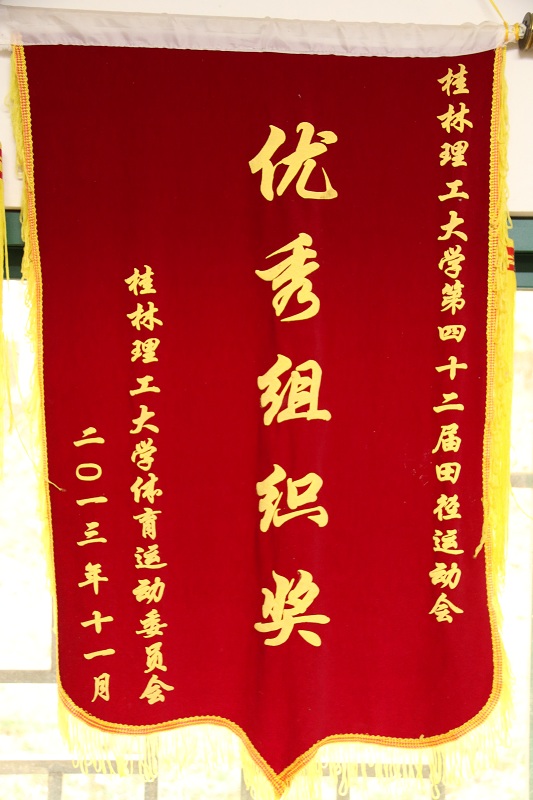 桂林理工大学第四十二届田径运动会
优秀组织奖
桂林理工大学体育运动委员会
二〇一三年十一月